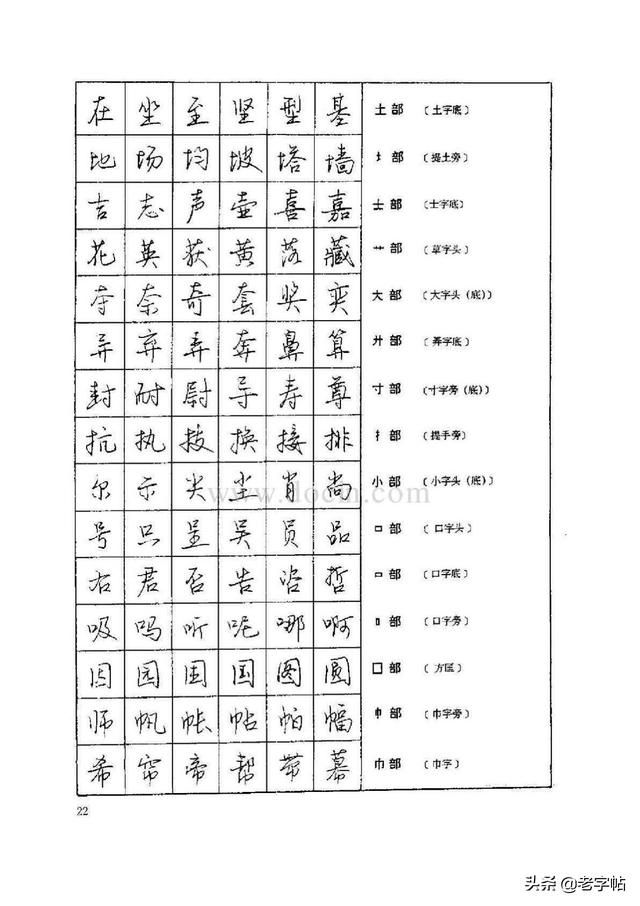 在 坐 至 坚 型 基 土部 (土字底)
地 场 均 坡 塔 墙 扌部 (提土旁)
吉 志 声 壶 喜 嘉 士部 (士字底)
花 英 获 黄 落 藏 艹部 (草字头)
夺 奈 奇 套 奖 奕 大部 (大字头(底))
异 弃 弄 奔 鼻 算 廾部 (弄字底)
封 耐 尉 导 寿 尊 寸部 (寸字旁(底))
抗 执 拔 换 接 排 扌部 (提手旁)
尔 示 尖 尘 肖 尚 小部 (小字头(底))
号 只 呈 吴 员 品 口部 (口字头)
右 君 否 告 咨 哲 口部 (口字底)
吸 吗 听 呢 哪 啊 口部 (口字旁)
因 园 国 图 圆 囗部 (方匡)
师 帆 帐 帖 帕 幅 巾部 (巾字旁)
希 帘 帝 帮 带 幕 巾部 (巾字)
www.docin.com
22
头条 @老字帖